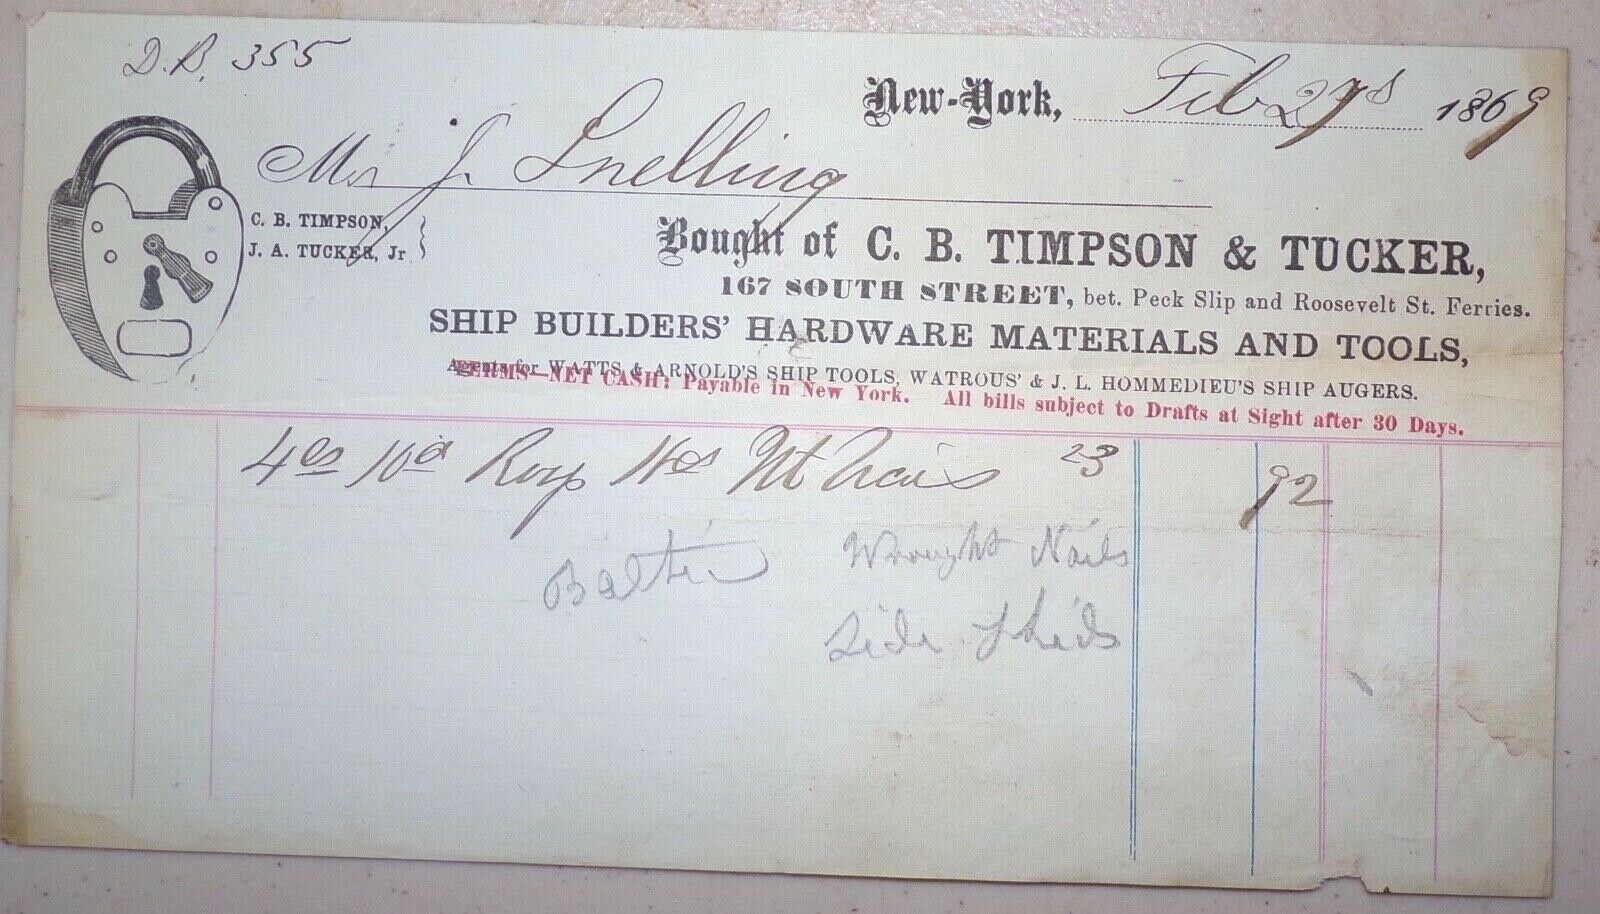 D.B. 355
New-York, Feb 27 1869
Mr J. Snelling
C. B. TIMPSON,
J. A. TUCKER, Jr
Bought of C. B. TIMPSON & TUCKER,
167 SOUTH STREET, bet. Peck Slip and Roosevelt St. Ferries.
SHIP BUILDERS' HARDWARE MATERIALS AND TOOLS,
Agents for WATTS & ARNOLD'S SHIP TOOLS, WATROUS' & J. L. HOMMEDIEU'S SHIP AUGERS.
TERMS—NET CASH: Payable in New York. All bills subject to Drafts at Sight after 30 Days.
10d 23 92
Wrought Nails
Side